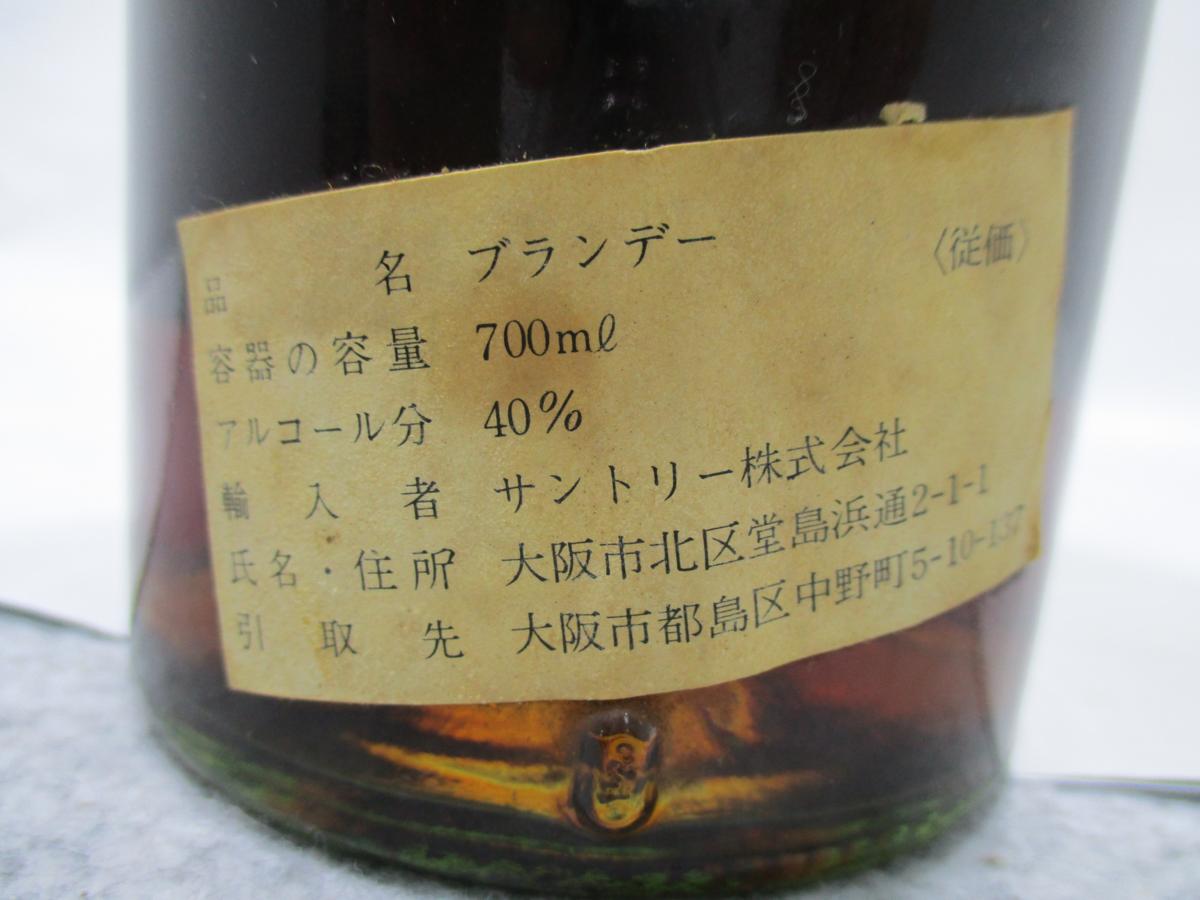 品名 ブランデー 〈従価〉
容器の容量 700mℓ
アルコール分 40%
輸入者 サントリー株式会社
氏名・住所 大阪市北区堂島浜通2-1-1
引取先 大阪市都島区中野町5-10-137